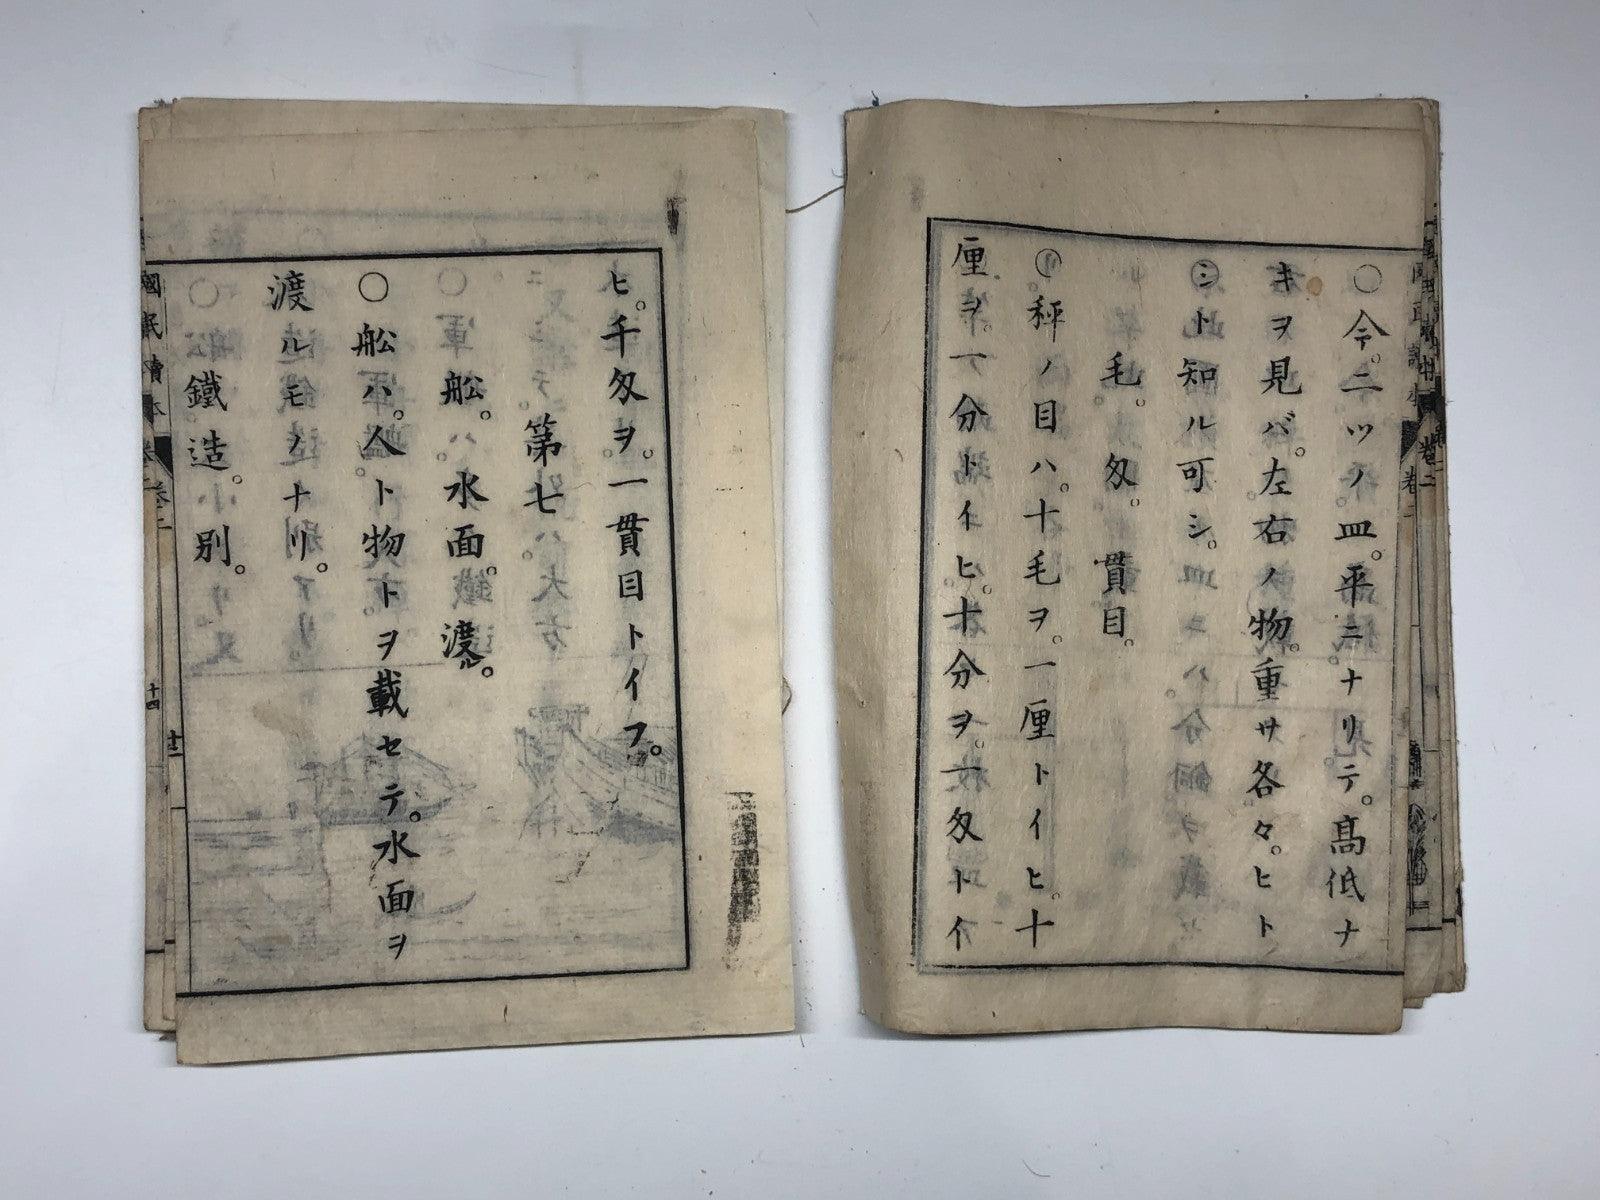 〇今。二ツノ皿。平ニナリテ。高低ナ
キヲ見バ。左右ノ物。重サ各々。ヒト
シト知ル可シ。
毛。匁。貫目。
秤ノ目ハ。十毛ヲ。一厘トイヒ。十
厘ヲ。一分トイヒ。十分ヲ。一匁トイ
ヒ。千匁ヲ。一貫目トイフ。
第七
舩。水面。渡ル。
〇舩ハ。人ト物トヲ載セテ。水面ヲ
渡ルモノナリ。
鐵造。別。
國民讀本
卷二
十四
卷二
卷二